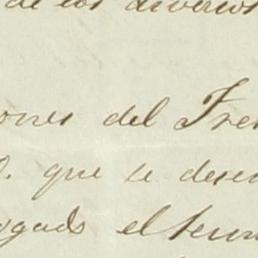 de los diversos
ones del Fre
que se dese
ogado el